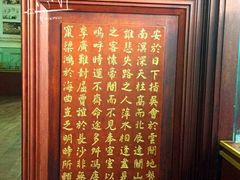 安於日下指吳會於雲間地勢
南溟深天柱高而北辰遠關山
誰悲失路之人萍水相逢盡是
之客懷帝閽而不見奉宣室以
嗚呼時運不齊命途多舛馮唐
李廣難封屈賈誼於長沙非無
竄梁鴻於海曲豈乏明時所賴